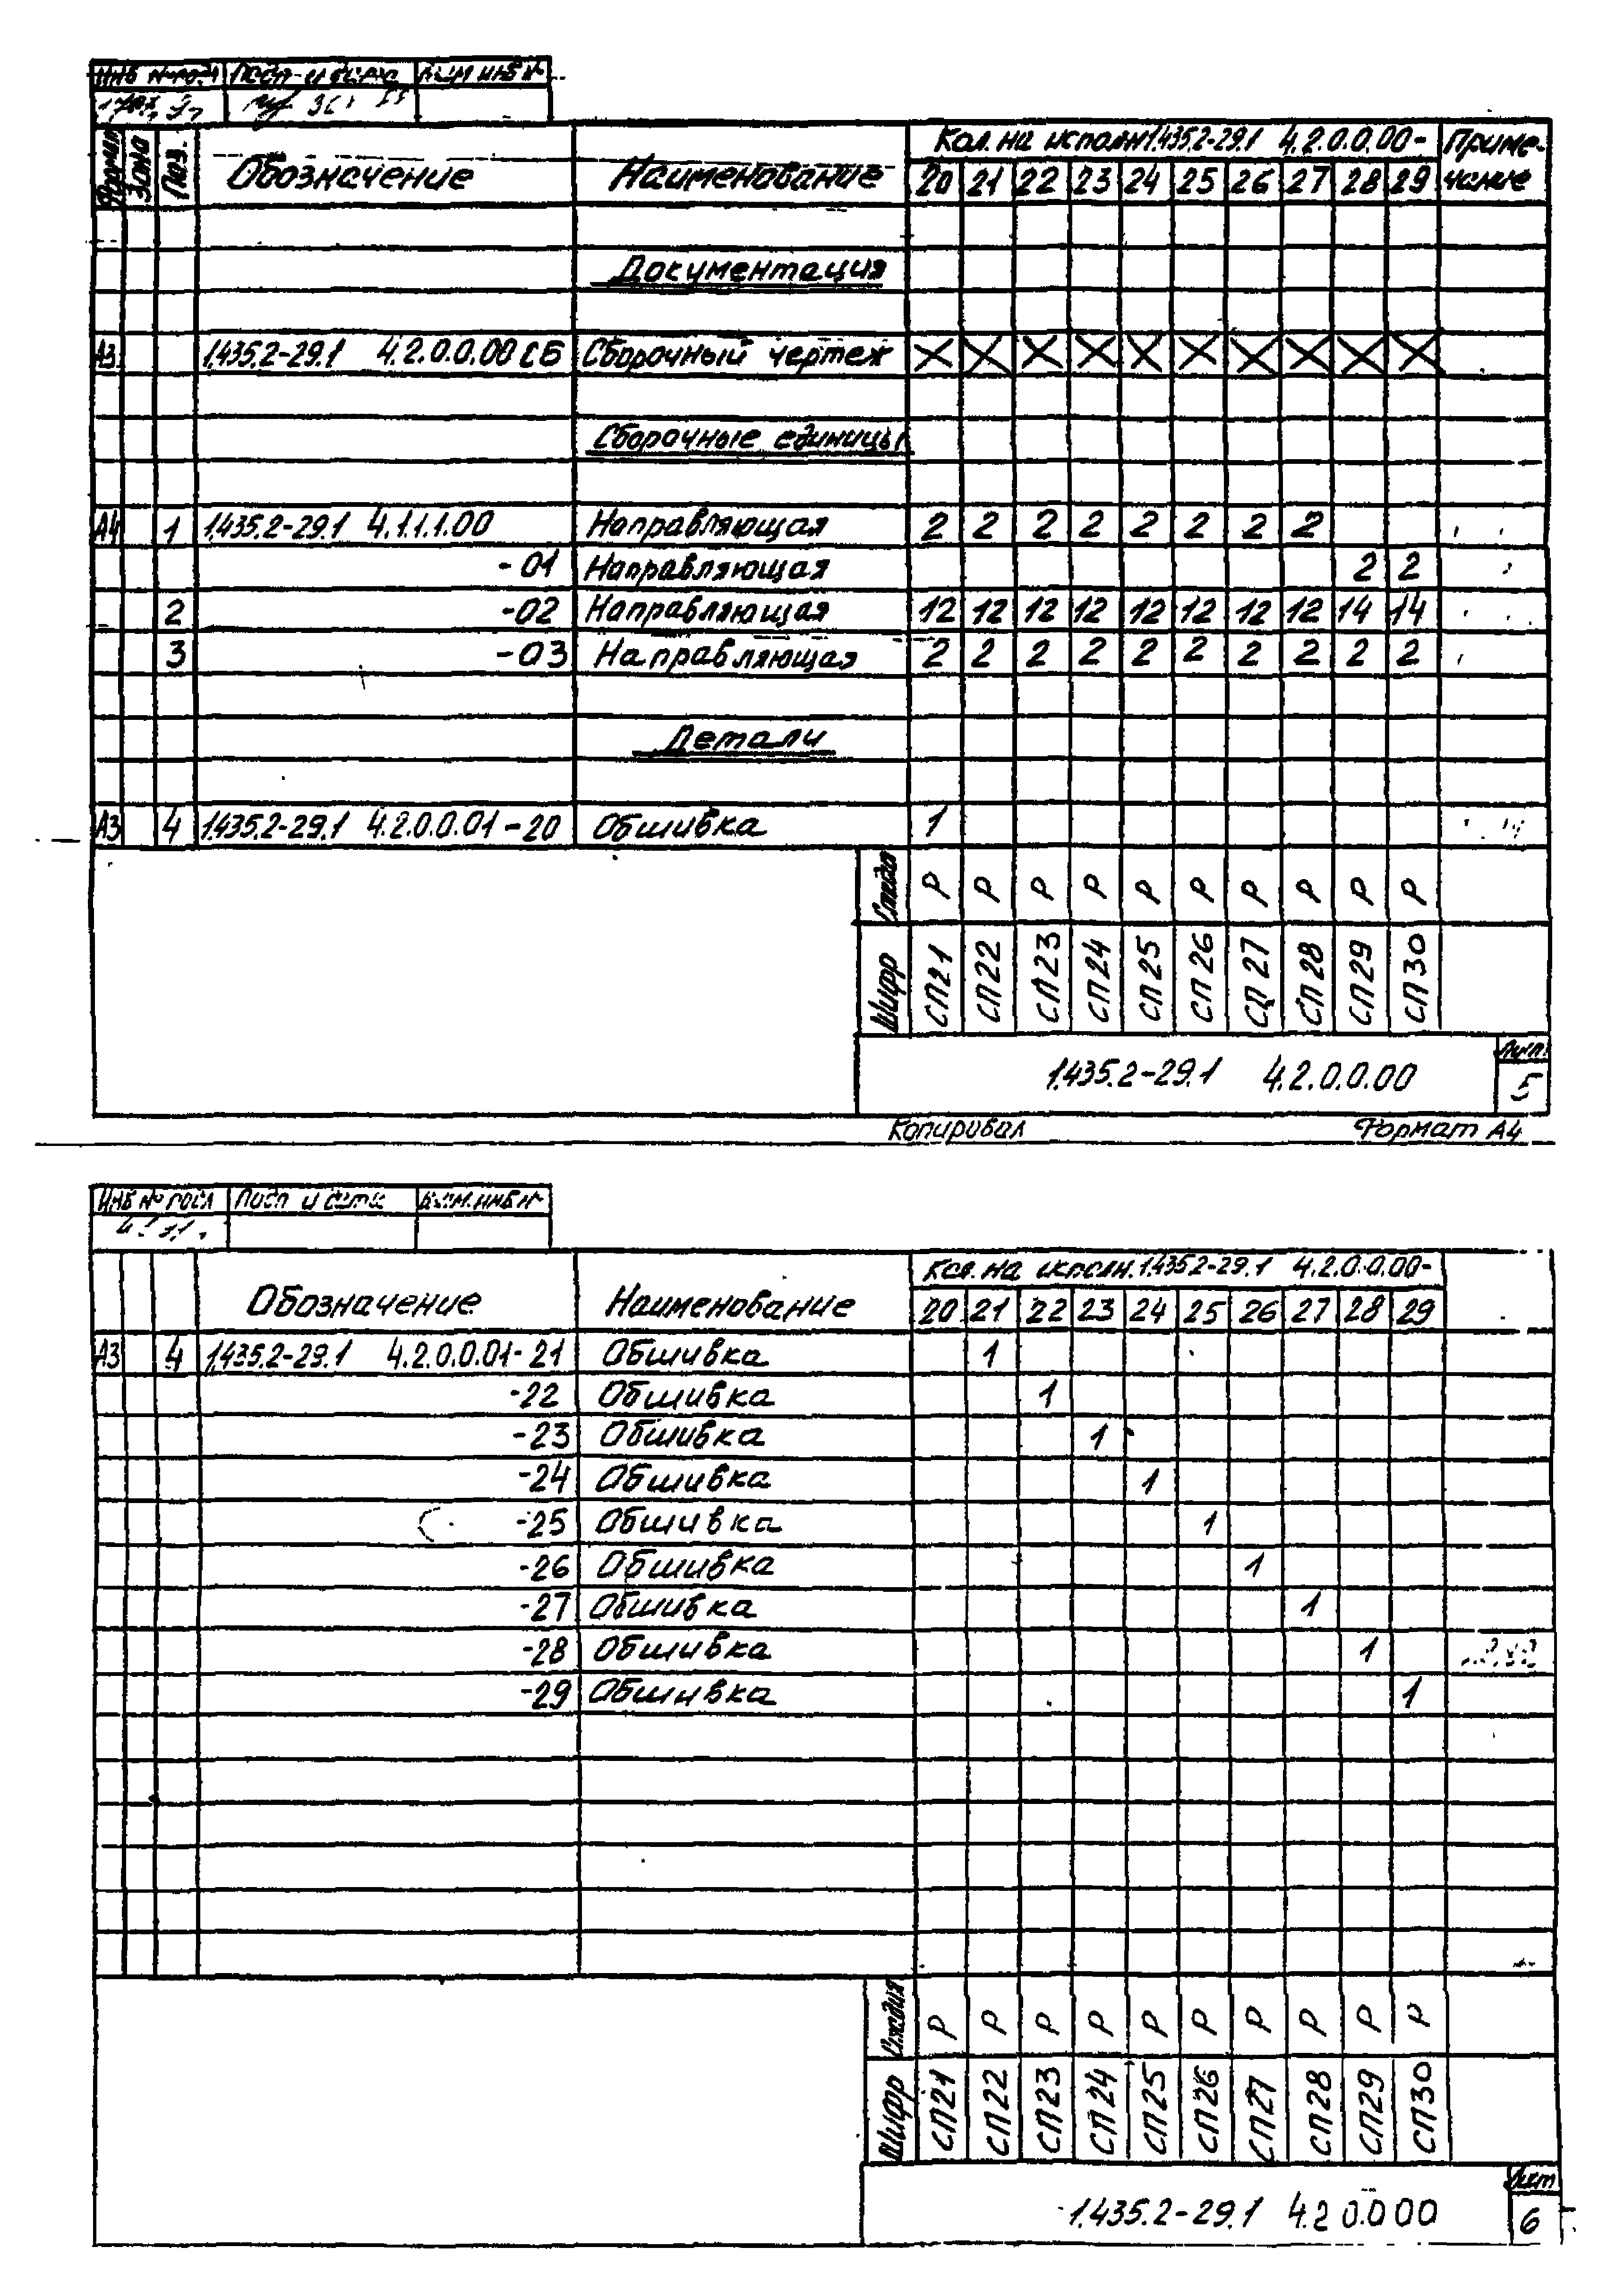 Инв № подл Подп. и дата Взам инв №
Формат Зона Поз. Обозначение Наименование Кол. на исполн 1.435.2-29.1 4.2.0.0.00- Приме-
20 21 22 23 24 25 26 27 28 29 чание
Документация
А3 1.435.2-29.1 4.2.0.0.00 СБ Сборочный чертеж X X X X X X X X X X
Сборочные единицы
А4 1 1.435.2-29.1 4.1.1.1.00 Направляющая 2 2 2 2 2 2 2 2
-01 Направляющая 2 2
2 -02 Направляющая 12 12 12 12 12 12 12 12 14 14
3 -03 Направляющая 2 2 2 2 2 2 2 2 2 2
Детали
А3 4 1.435.2-29.1 4.2.0.0.01-20 Обшивка 1
Стадия Р Р Р Р Р Р Р Р Р Р
Шифр СП21 СП22 СП23 СП24 СП25 СП26 СП27 СП28 СП29 СП30
1.435.2-29.1 4.2.0.0.00
Лист
5
Копировал Формат А4
Инв № подл Подп и дата Взам. инв №
Обозначение Наименование Кол. на исполн. 1.435.2-29.1 4.2.0.0.00-
20 21 22 23 24 25 26 27 28 29
А3 4 1.435.2-29.1 4.2.0.0.01-21 Обшивка 1
-22 Обшивка 1
-23 Обшивка 1
-24 Обшивка 1
-25 Обшивка 1
-26 Обшивка 1
-27 Обшивка 1
-28 Обшивка 1
-29 Обшивка 1
Стадия Р Р Р Р Р Р Р Р Р Р
Шифр СП21 СП22 СП23 СП24 СП25 СП26 СП27 СП28 СП29 СП30
1.435.2-29.1 4.2 0.0 00
Лист
6